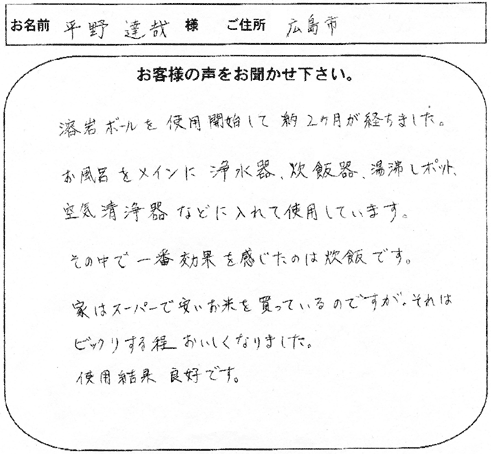 お名前 平野 達哉 様 ご住所 広島市
お客様の声をお聞かせ下さい。
溶岩ボールを使用開始して約2ヶ月が経ちました。
お風呂をメインに浄水器、炊飯器、湯沸しポット、
空気清浄器などに入れて使用しています。
その中で一番効果を感じたのは炊飯です。
家はスーパーで安いお米を買っているのですが、それは
ビックリする程おいしくなりました。
使用結果良好です。